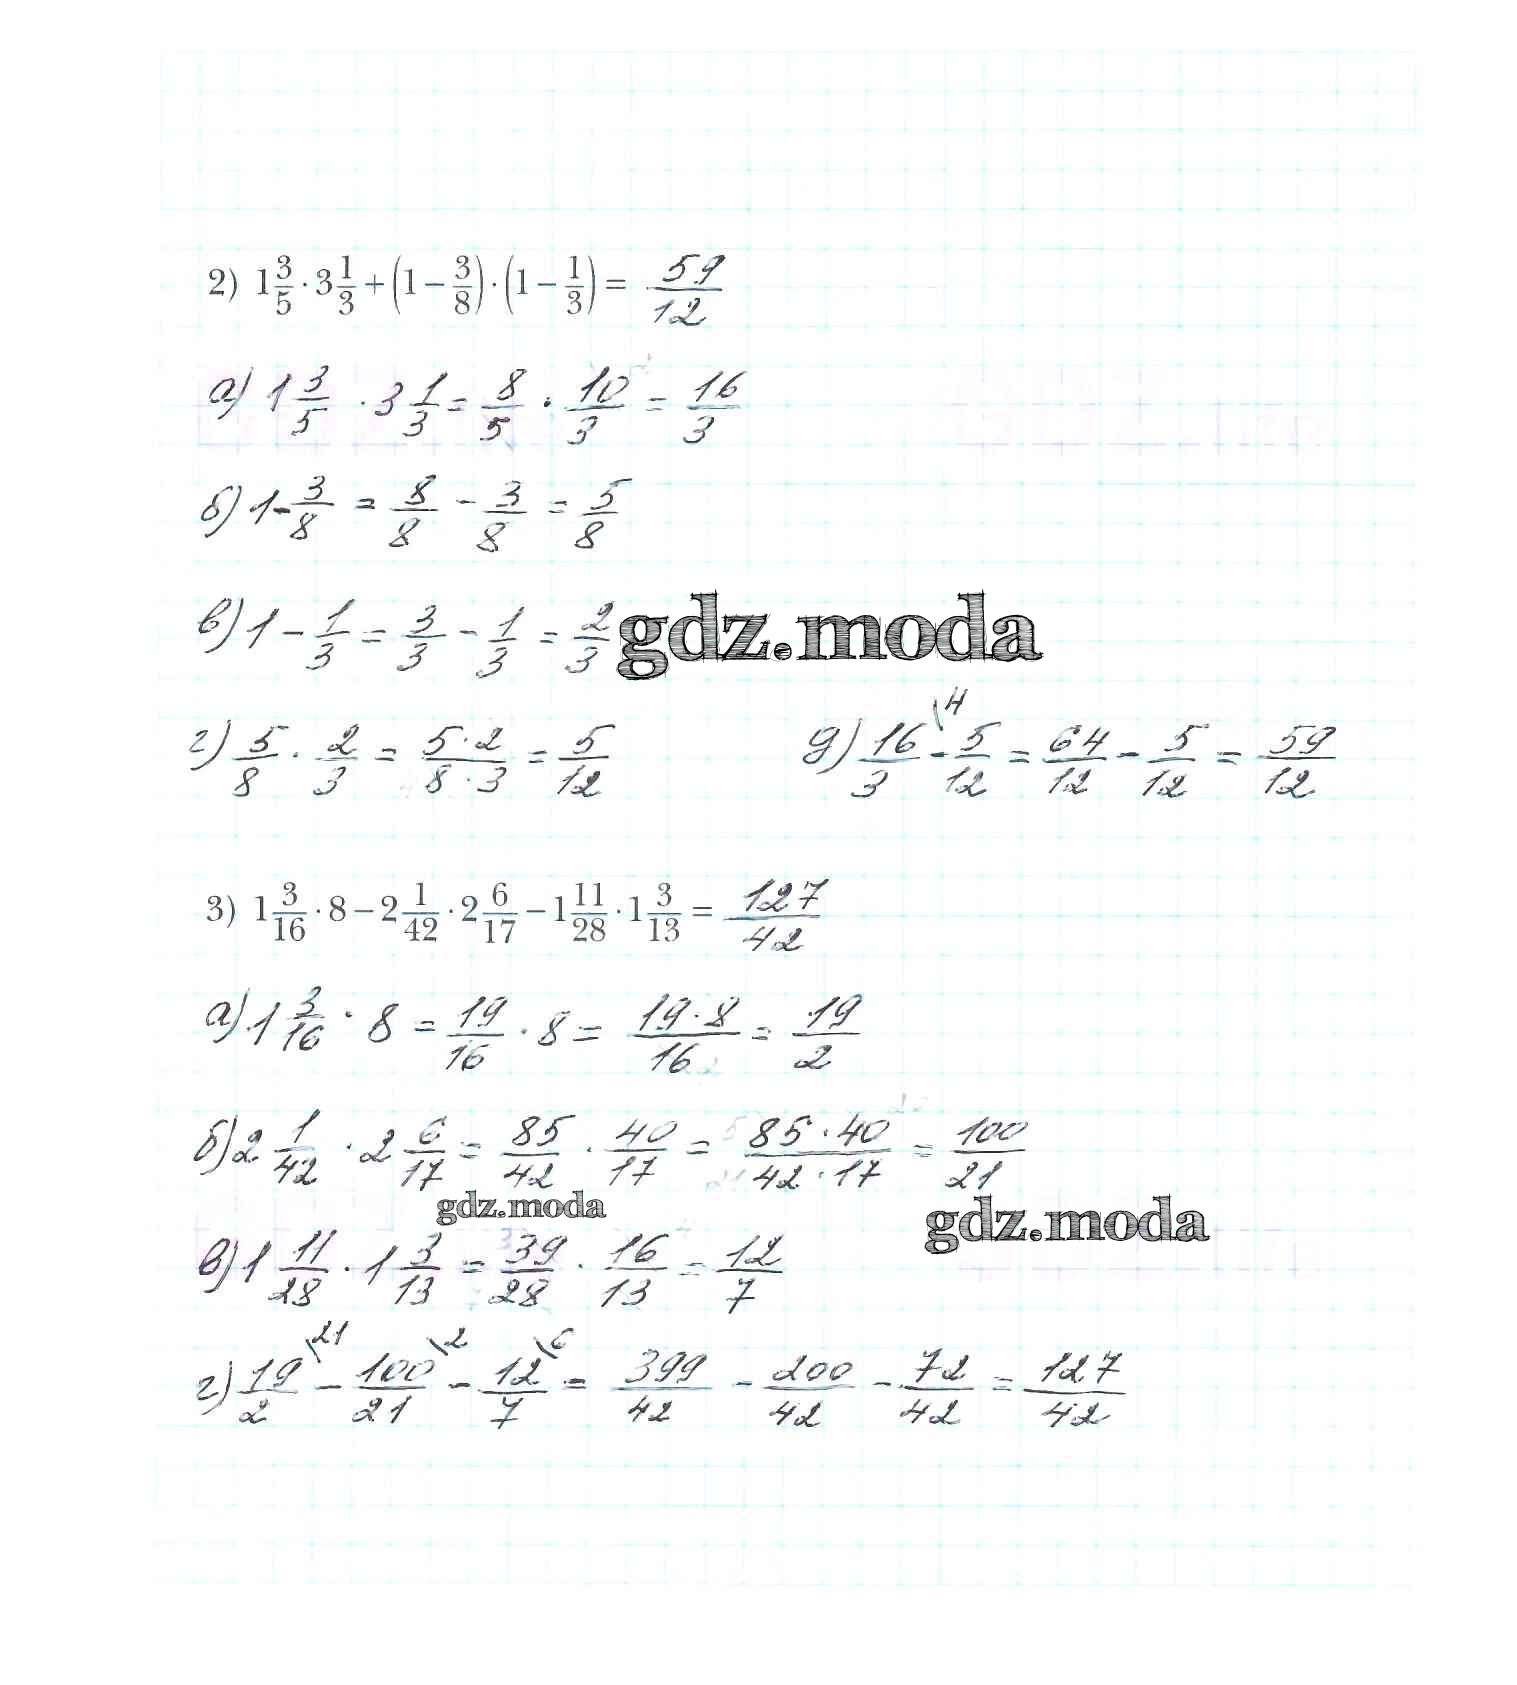 2) 1 3/5 · 3 1/3 + (1 − 3/8) · (1 − 1/3) = 59/12
а) 1 3/5 · 3 1/3 = 8/5 · 10/3 = 16/3
б) 1 - 3/8 = 8/8 - 3/8 = 5/8
в) 1 - 1/3 = 3/3 - 1/3 = 2/3
gdz.moda
г) 5/8 · 2/3 = 5·2/8·3 = 5/12
д) 16/3 \4 - 5/12 = 64/12 - 5/12 = 59/12
3) 1 3/16 · 8 − 2 1/42 · 2 6/17 − 1 11/28 · 1 3/13 = 127/42
а) 1 3/16 · 8 = 19/16 · 8 = 19·8/16 = 19/2
б) 2 1/42 · 2 6/17 = 85/42 · 40/17 = 85·40/42·17 = 100/21
gdz.moda
gdz.moda
в) 1 11/28 · 1 3/13 = 39/28 · 16/13 = 12/7
г) 19/2 \21 - 100/21 \2 - 12/7 \6 = 399/42 - 200/42 - 72/42 = 127/42